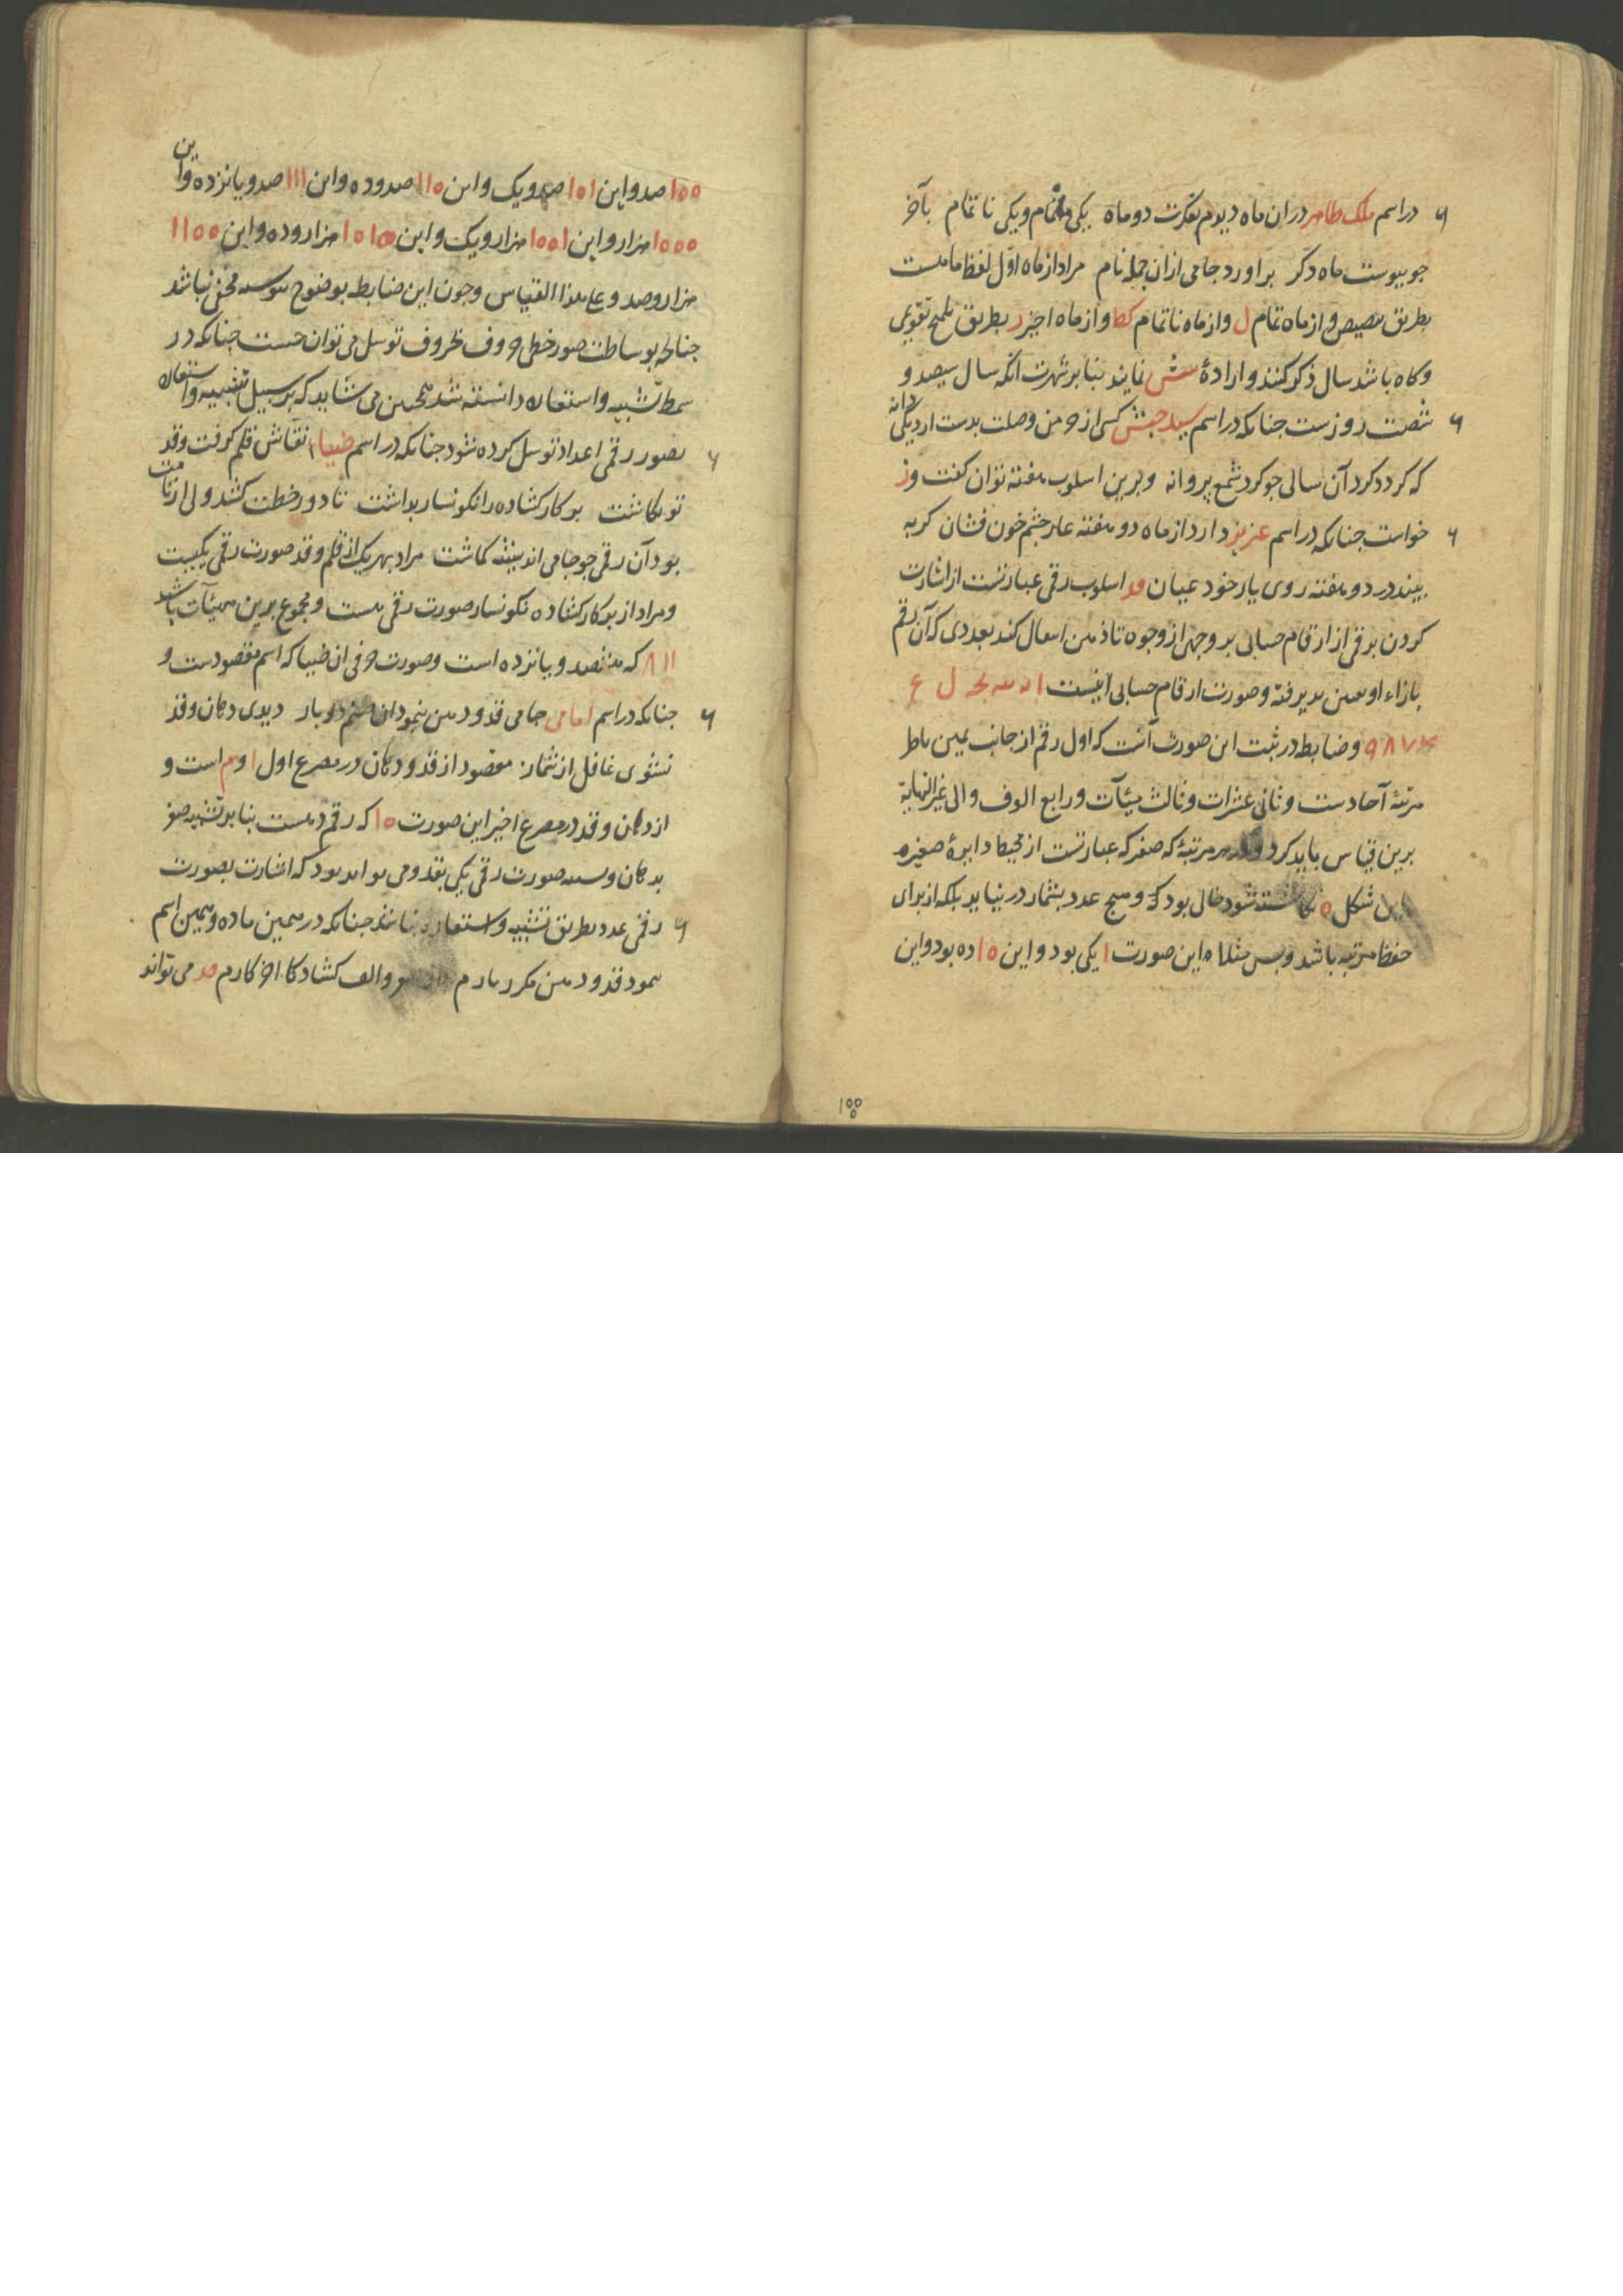 در اسم ملک طاهر در ان ماه دیدم بفکرت دو ماه یکی ماه تمام و یکی نا تمام بآخر
جو پیوست ماه دکر بر اورد جامی از ان جمله نام مراد از ماه اوّل لفظ ماهست
بطریق تنصیص و از ماه تمام ل و از ماه نا تمام کط و از ماه اخیر ر بطریق تلمیح تقویمی
و کاه باشد سال ذکر کنند و ارادهٔ شش نمایند بنا بر شهرت انکه سال سیصد و
شصت روز ست جنانکه در اسم سید حبش کسی از خرمن وصلت بدست ارد یکی دانه
که کردد کرد آن سالی جو کرد شمع پروانه و برین اسلوب هفته توان کفت و ز
خواست جنانکه در اسم عزیز دارد از ماه دو هفته عار جشم خون فشان کر به
بیند در دو هفته روی یار خود عیان اسلوب رقمی عبارتست از اشارت
کردن برقمی از ارقام حسابی بر وجهی از وجوه تا ذهن انتقال کند بعددی که آن رقم
بازاء او تعین پذیرفته و صورت ارقام حسابی اینست
۹ ۸ ۷ و ضابطه در ثبت این صورت آنست که اول رقم از جانب یمین ناظر
مرتبهٔ آحادست و ثانی عشرات و ثالث میٔآت و رابع الوف و الی غیر النهایة
برین قیاس باید کرد و در هر مرتبهٔ که صفر که عبارتست از محیط دایرهٔ صغیره
باین شکل ه نکاشته شود خالی بود که و هیج عدد بشمار در نیاید بلکه از برای
حفظ مرتبه باشد و بس مثلا این صورت ا یکی بود و این ه ا ده بود و این
۱۰۰
۱۰۰ صد و این ۱۰۱ صد و یک و این ۱۱۰ صد و ده و این ۱۱۱ صد و یانزده و این
۱۰۰۰ هزار و این ۱۰۰۱ هزار و یک و این ۱۰۱۰ هزار و ده و این ۱۱۰۰
هزار و صد و علی هذا القیاس و جون این ضابطه بوضوح پیوسته مخفی نباشد
جنانکه بوساطت صور خطی حروف بحروف توسل می توان جست جنانکه در
سمط تشبیه و استعاره دانسته شد همچنین می شاید که بر سبیل تشبیه و استعاره
بصور رقمی اعداد توسل کرده شود جنانکه در اسم ضیا نقاش قلم کرفت و قد
تو نکاشت برکار کشاده را نکونسار بداشت تا دور خطت کشد ولی از قامت
بود آن رقمی جو جامی اندیشه کماشت مراد بهر یک از قلم و قد صورت رقمی یکیست
و مراد از برکار کشاده نکونسار صورت رقمی هست و مجموع برین هیئات باشد
۸۱۱ که هشصد و یانزده است و صورت حرفی ان ضیا که اسم مقصودست و
جنانکه در اسم امامی جامی قد و دهن بنمود ان صنم دو بار دیدی دهان و قد
نشوی غافل از شمار مقصود از قد و دهان در مصرع اول ا و م است و
از دهان و قد در مصرع اخیر این صورت ۱۰ که رقم دهست بنا بر تشبیه صفر
بدهان و تشبیه صورت رقمی یکی بقد و می تواند بود که اشارت بصورت
رقمی عدد بطریق تشبیه و استعاره نباشد جنانکه در همین ماده و همین اسم
بنمود قد و دهن مکرر یارم و الف کشاد کار اخر کارم می تواند